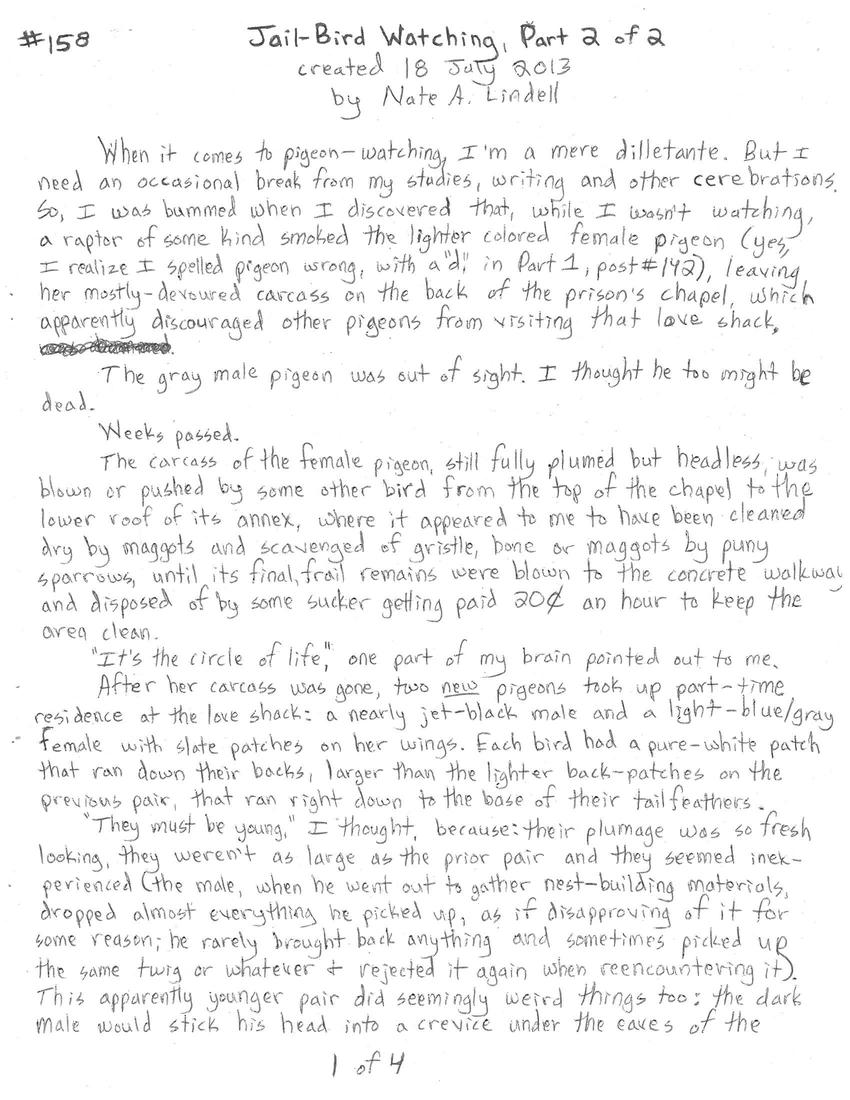 #158
Jail-Bird Watching, Part 2 of 2
created 18 July 2013
by Nate A. Lindell
When it comes to pigeon-watching, I'm a mere dilletante. But I
need an occasional break from my studies, writing and other cerebrations.
So, I was bummed when I discovered that, while I wasn't watching,
a raptor of some kind smoked the lighter colored female pigeon (yes,
I realize I spelled pigeon wrong, with a "d," in Part 1, post #142), leaving
her mostly-devoured carcass on the back of the prison's chapel, which
apparently discouraged other pigeons from visiting that love shack,
The gray male pigeon was out of sight. I thought he too might be
dead.
Weeks passed.
The carcass of the female pigeon, still fully plumed but headless, was
blown or pushed by some other bird from the top of the chapel to the
lower roof of its annex, where it appeared to me to have been cleaned
dry by maggots and scavenged of gristle, bone or maggots by puny
sparrows, until its final, frail remains were blown to the concrete walkway
and disposed of by some sucker getting paid 20¢ an hour to keep the
area clean.
"It's the circle of life," one part of my brain pointed out to me.
After her carcass was gone, two new pigeons took up part-time
residence at the love shack: a nearly jet-black male and a light-blue/gray
female with slate patches on her wings. Each bird had a pure-white patch
that ran down their backs, larger than the lighter back-patches on the
previous pair, that ran right down to the base of their tailfeathers.
"They must be young," I thought, because: their plumage was so fresh
looking, they weren't as large as the prior pair and they seemed inek-
perienced (the male, when he went out to gather nest-building materials,
dropped almost everything he picked up, as if disapproving of it for
some reason; he rarely brought back anything and sometimes picked up
the same twig or whatever + rejected it again when reencountering it).
This apparently younger pair did seemingly weird things too: the dark
male would stick his head into a crevice under the eaves of the
1 of 4